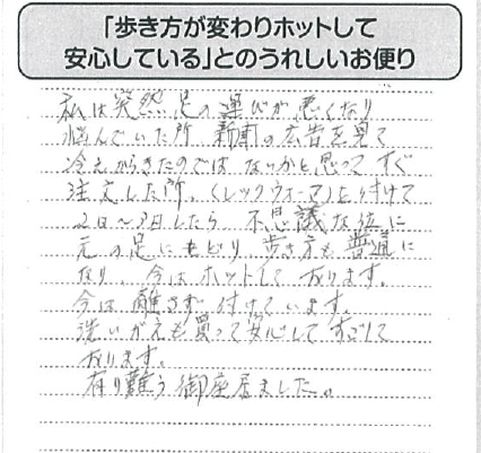 「歩き方が変わりホットして
安心している」とのうれしいお便り
私は突然足の運びが悪くなり
悩んでいた所 新聞の広告を見て
冷えからきたのではないかと思ってすぐ
注文した所、(レックウォーマ)を付けて
2日〜3日したら 不思議な位に
元の足にもどり、歩き方も普通に
なり、今はホットして おります。
今は離さず付けています。
洗いがえも買って安心してすごして
おります。
有り難う御座居ました。